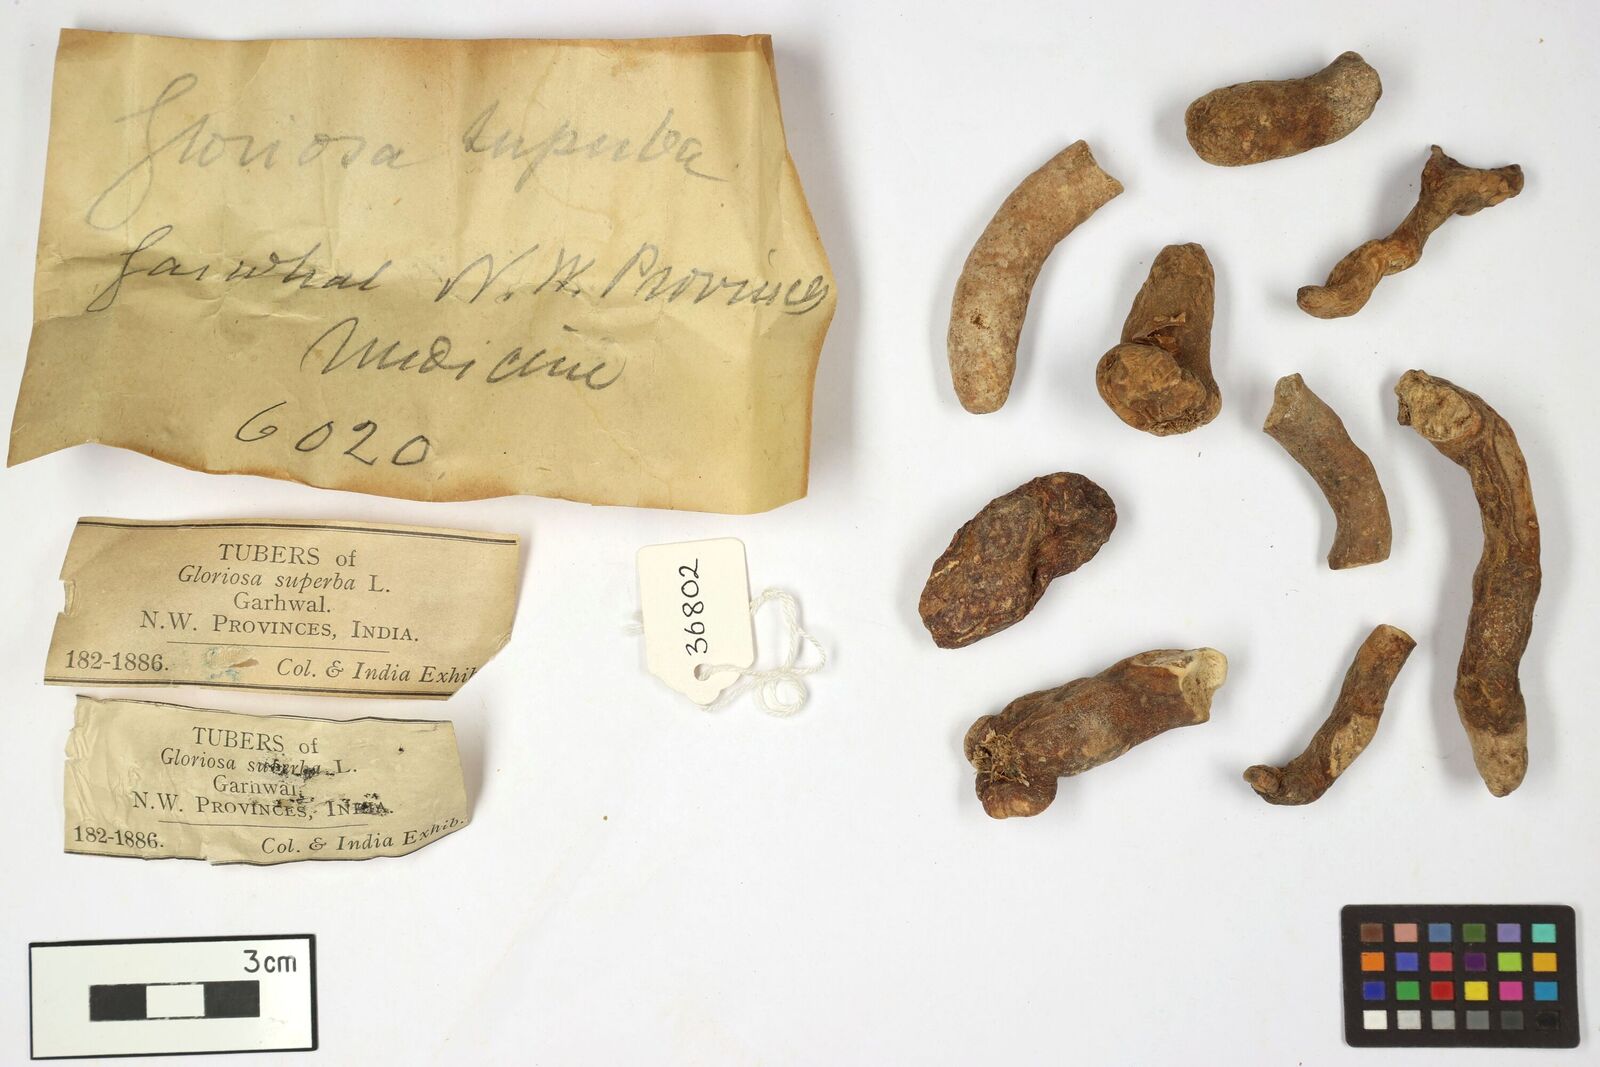 Gloriosa superba
Garwhal N.W. Provinces
Medicine
6020
TUBERS of
Gloriosa superba L.
Garhwal.
N.W. PROVINCES, INDIA.
182-1886. Col. & India Exhib
TUBERS of
Gloriosa superba L.
Garhwal.
N.W. PROVINCES, INDIA.
182-1886. Col. & India Exhib.
36802
3cm